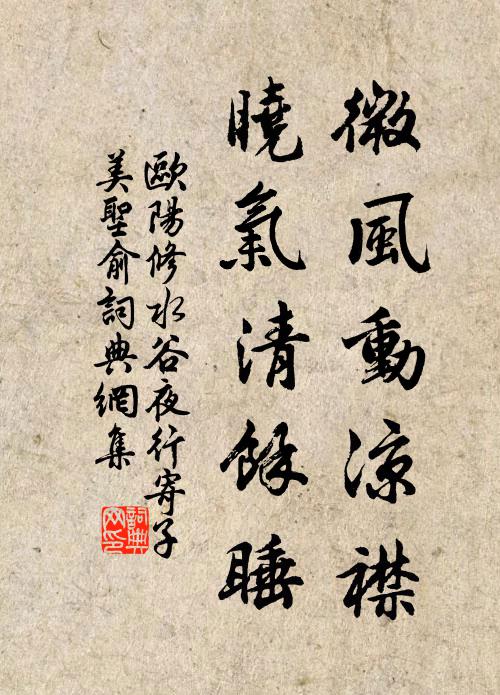 微風動涼襟
曉氣清餘睡
歐陽修水谷夜行寄子
美聖俞詞典網集
詞典网印